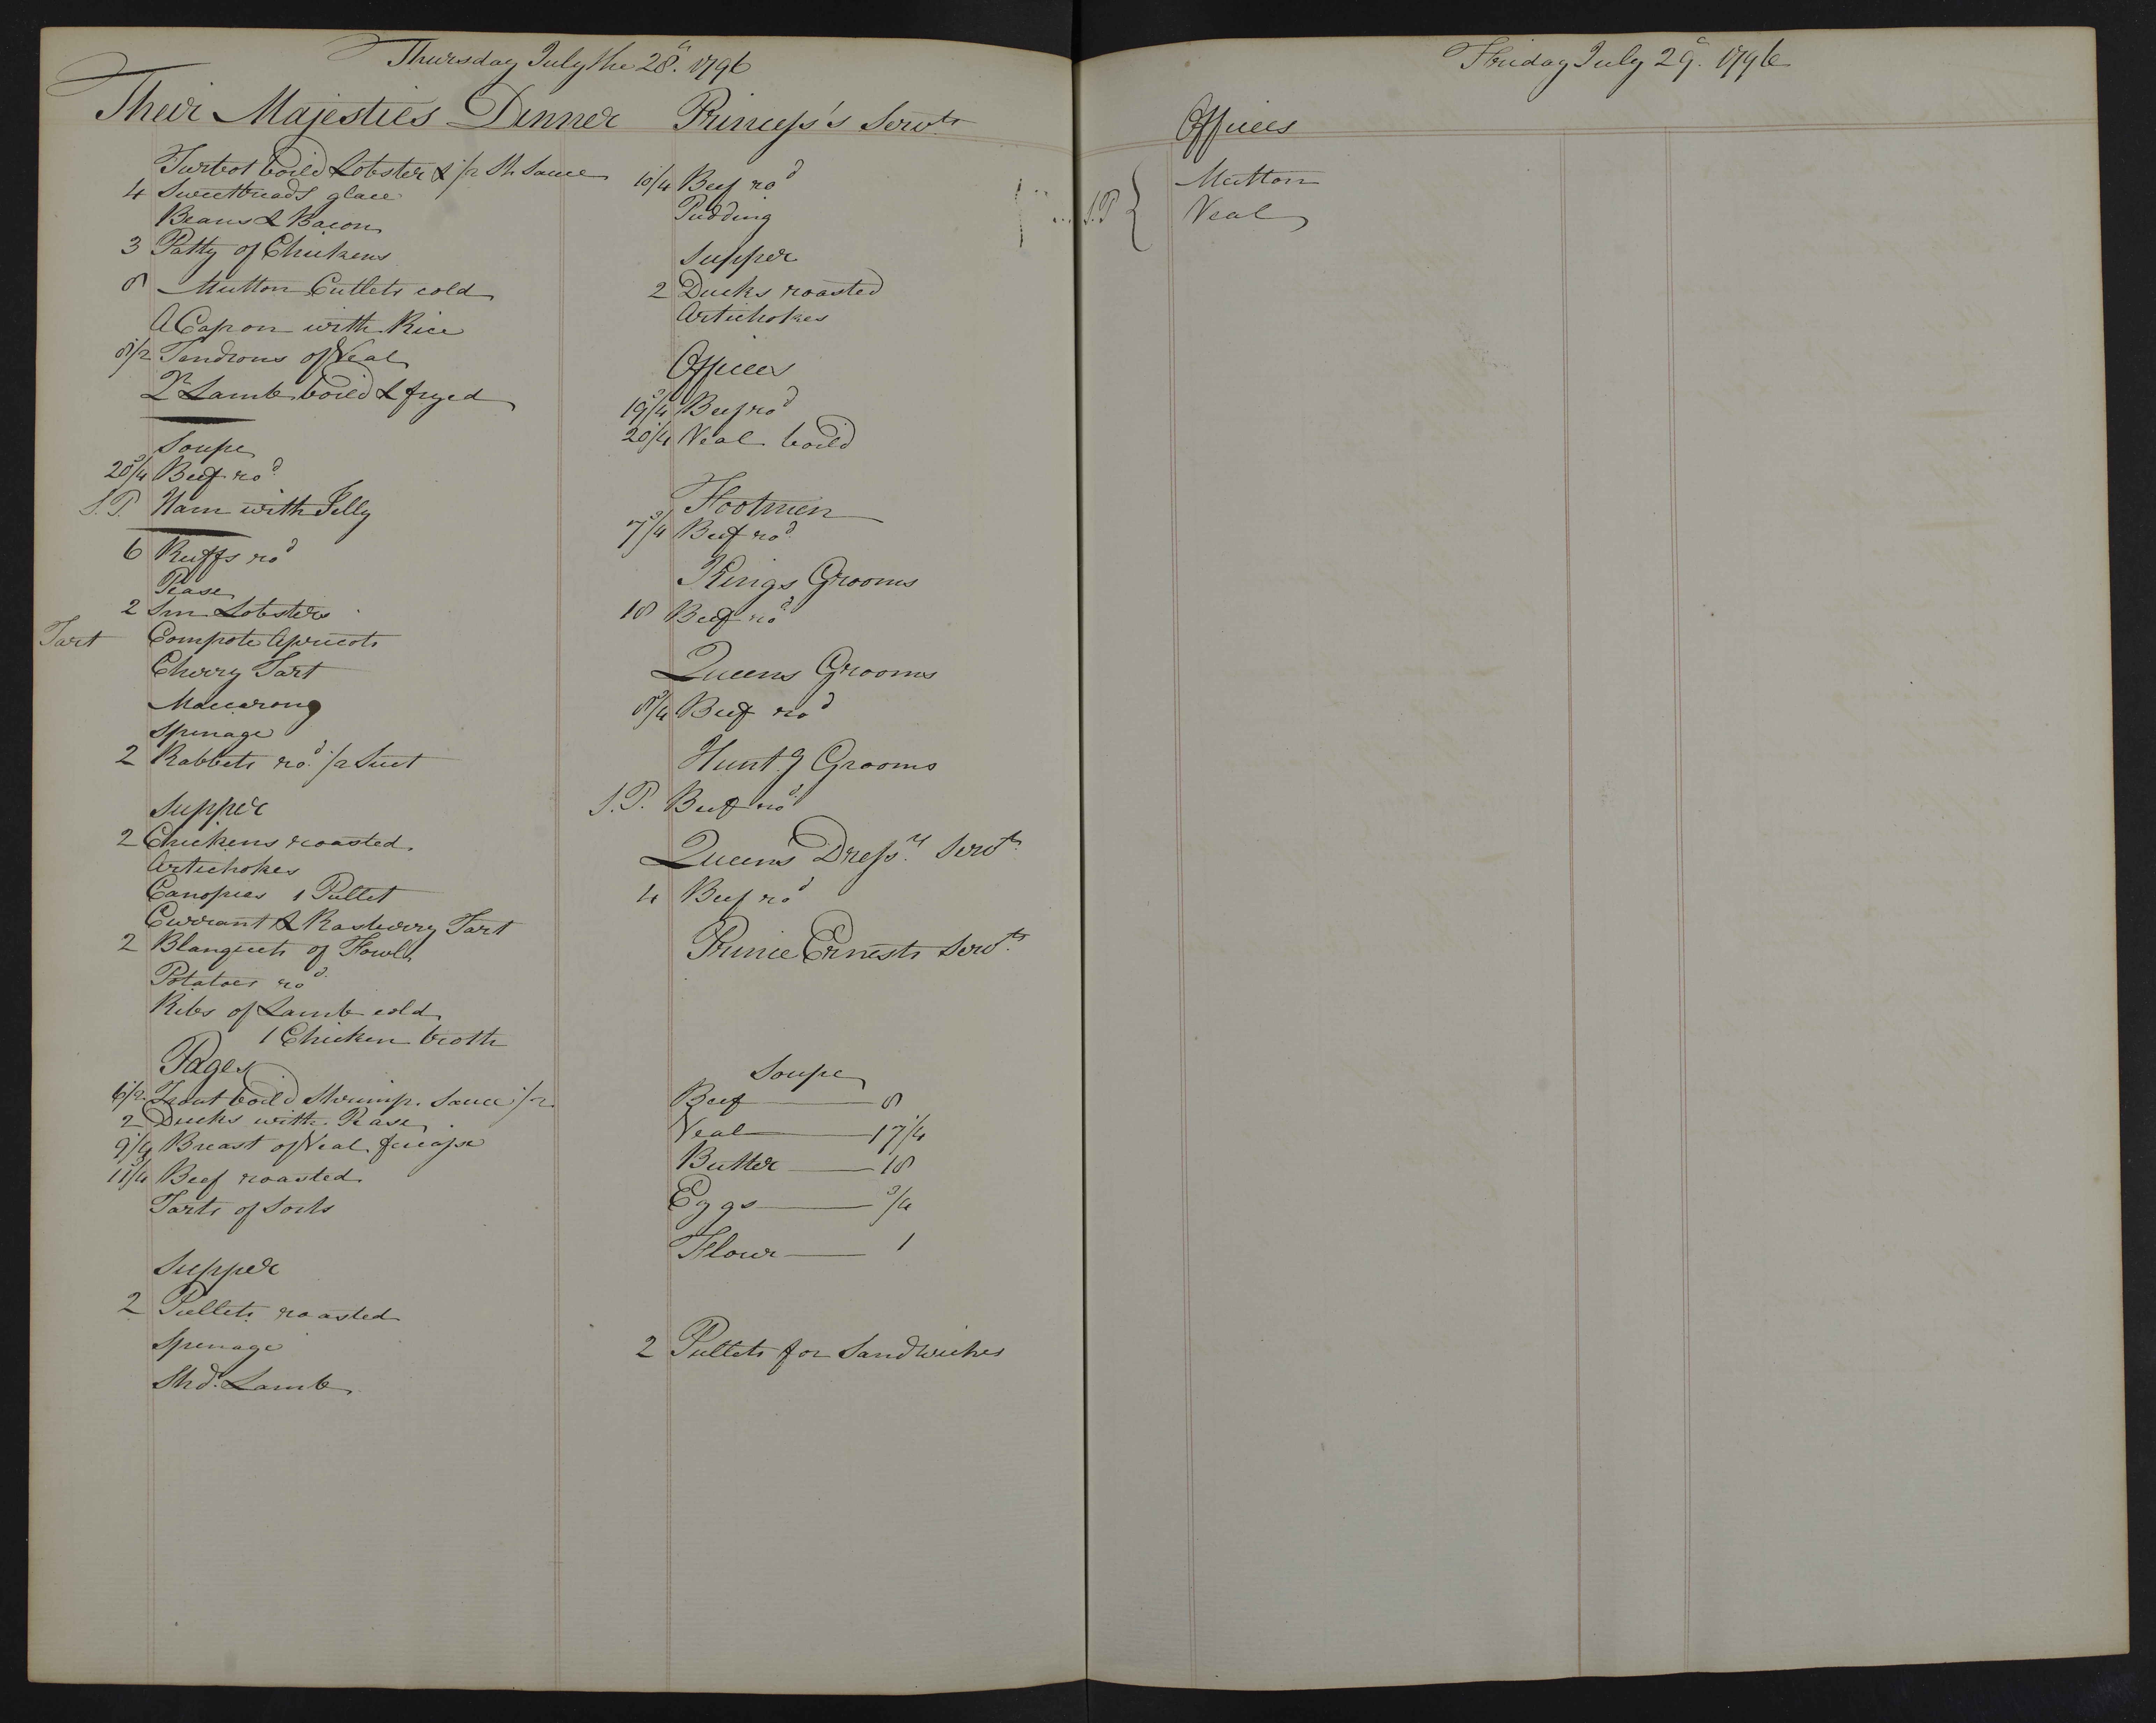 Thursday July the 28th. 1796
Their Majesties Dinner
Turbot boild Lobster & 1/2 Sh Sauce
4 Sweetbreads glace
Beans & Bacon
3 Patty of Chickens
8 Mutton Cutlets cold
A Capon with Rice
8 1/2 Tendrons of Veal
Qr Lamb boild & fryed
Soupe
20 3/4 Beef rod
S.P. Ham with Jelly
6 Ruffs rod
Pease
2 Sm Lobsters
Tart Compote Apricots
Cherry Tart
Maccarony
Spinage
2 Rabbets rod. 1/2 Suet
Supper
2 Chickens roasted
Artichokes
Canopies 1 Pullet
Currant & Rasberry Tart
2 Blanquets of Fowls
Potatoes rod.
Ribs of Lamb cold
1 Chicken broth
Pages
6 1/2 Trout boild Shrimp. Sauce 1/2
2 Ducks with Pease
9 1/4 Breast of Veal
11 3/4 Beef roasted
Tarts of Sorts
Supper
2 Pullets roasted
Spinage
Shd. Lamb
Princess's Servts
10 1/4 Beef rod
Pudding
Supper
2 Ducks roasted
Artichokes
Offices
19 3/4 Beef rod
20 1/4 Veal boild
Footmen
7 3/4 Beef rod.
Kings Grooms
18 Beef rod
Queens Grooms
8 3/4 Beef rod
Hunt.g Grooms
S.P. Beef rod
Queen's Dress.rs Servts
4 Beef rod
Prince Ernests Servts.
Soupe
Beef — 8
Veal — 17 1/4
Butter — 18
Eggs — 3/4
Flour — 1
2 Pullets for Sandwiches
Friday July 29. 1796
Offices
S.P { Mutton
Veal